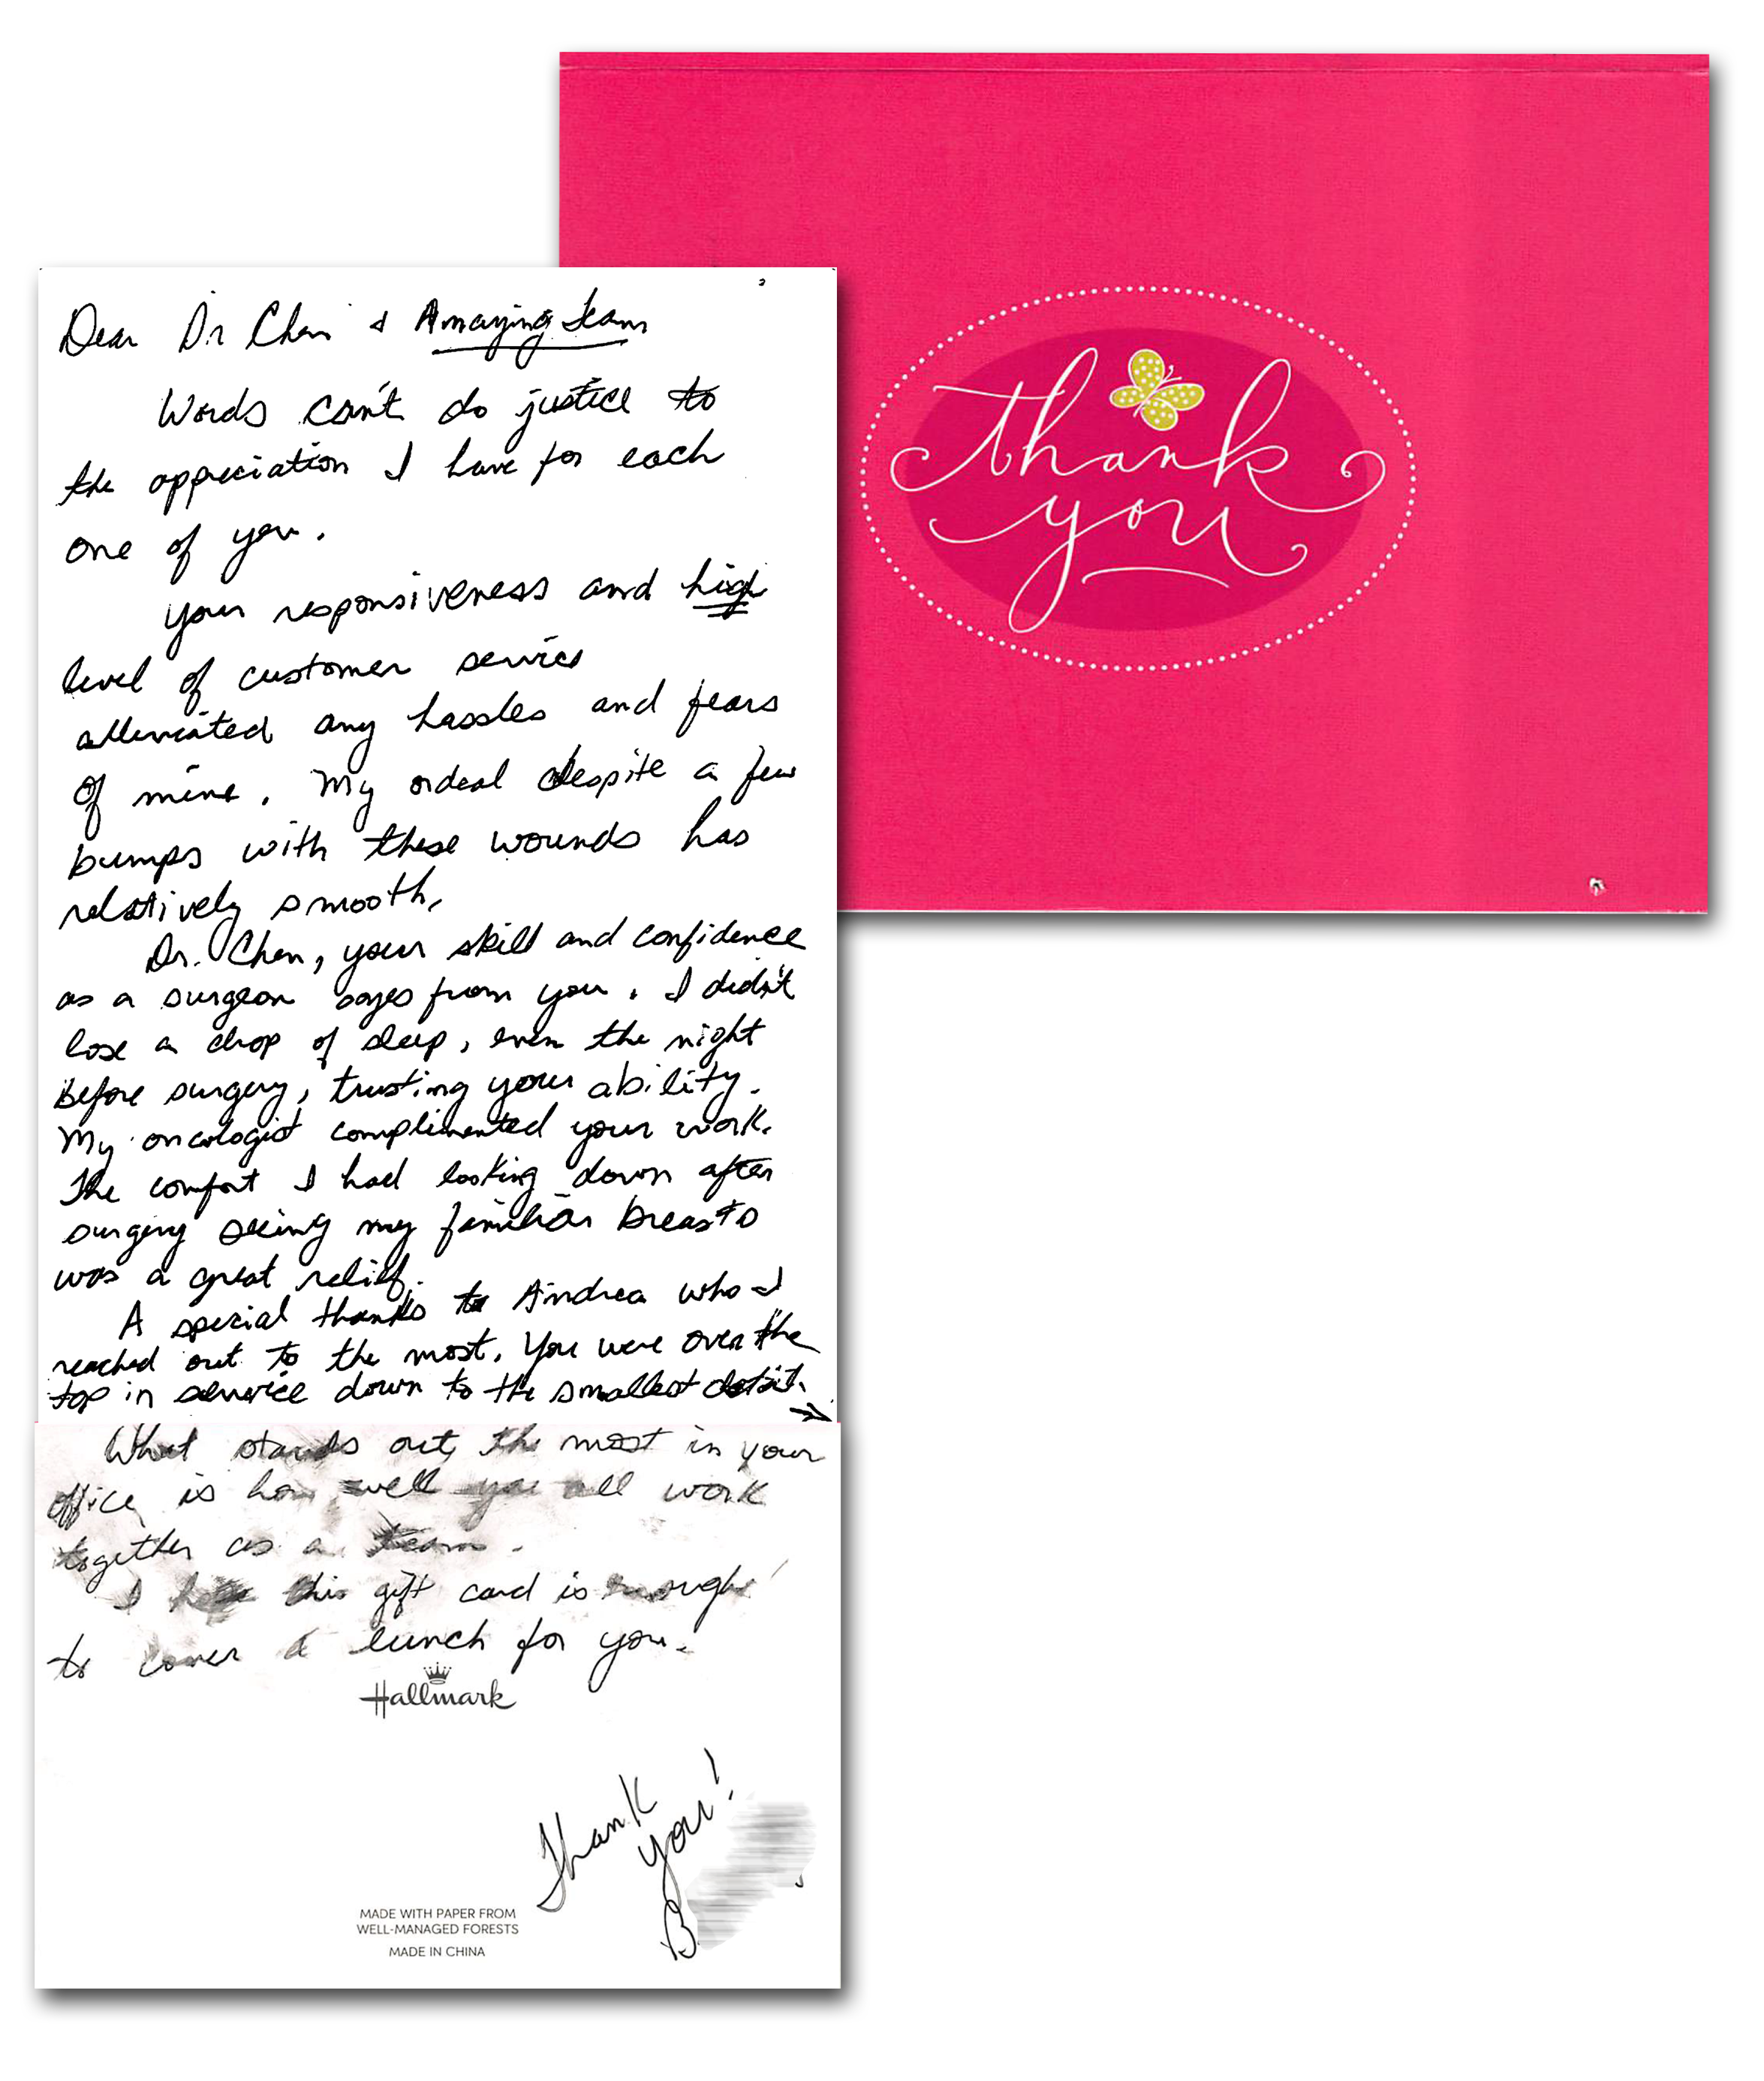 thank
you
Dear Dr Chen & Amazing team
Words can't do justice to
the appreciation I have for each
one of you.
Your responsiveness and high
level of customer service
alleviated any hassles and fears
of mine. My ordeal despite a few
bumps with these wounds has
relatively smooth.
Dr. Chen, your skill and confidence
as a surgeon oozes from you. I didn't
lose a drop of sleep, even the night
before surgery, trusting your ability.
My oncologist complimented your work.
The comfort I had looking down after
surgery seeing my familiar breasts
was a great relief.
A special thanks to Andrea who I
reached out to the most. You were over the
top in service down to the smallest detail.
What stands out the most in your
office is how well you all work
together as a team.
I hope this gift card is enough
to cover a lunch for you.
Hallmark
Thank
you!
B
MADE WITH PAPER FROM
WELL-MANAGED FORESTS
MADE IN CHINA